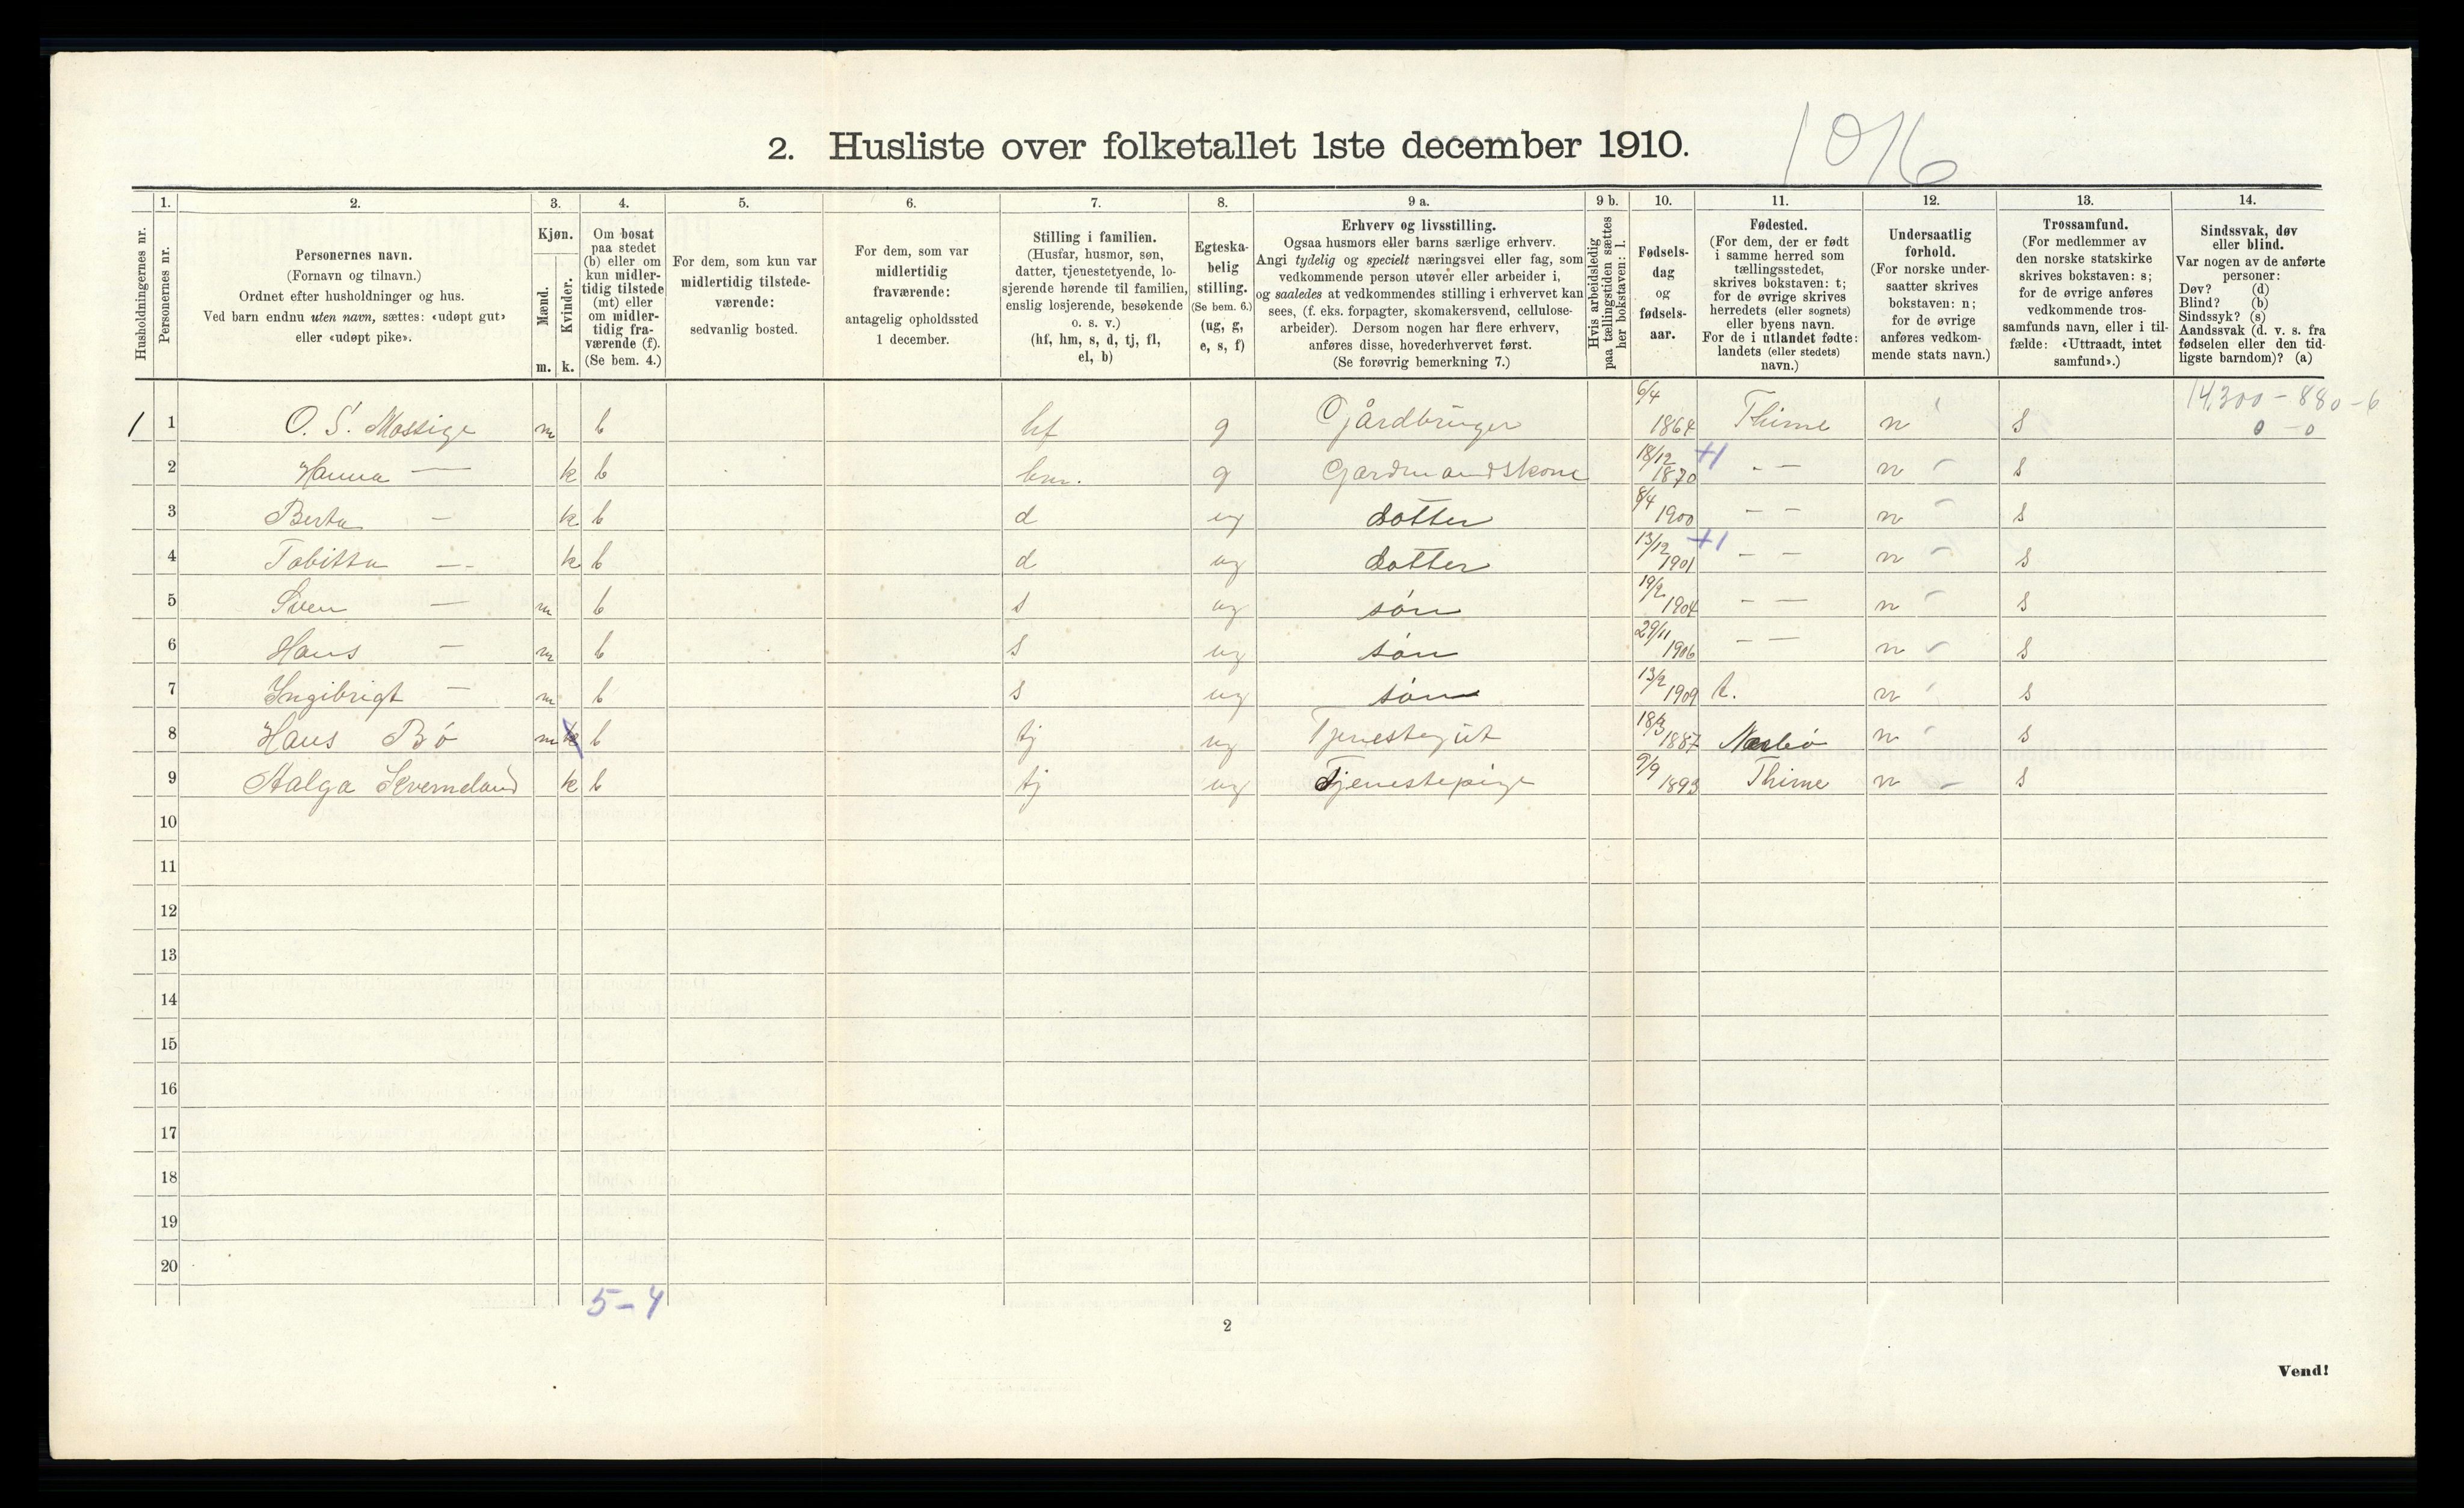 1016
2. Husliste over folketallet 1ste december 1910.
Husholdningernes nr.
1. Personernes nr.
2. Personernes navn.
(Fornavn og tilnavn.)
Ordnet efter husholdninger og hus.
Ved barn endnu uten navn, sættes: «udøpt gut»
eller «udøpt pike».
3. Kjøn.
Mænd. m.
Kvinder. k.
4. Om bosat
paa stedet
(b) eller om
kun midler-
tidig tilstede
(mt) eller
om midler-
tidig fra-
værende (f).
(Se bem. 4.)
5. For dem, som kun var
midlertidig tilstede-
værende:
sedvanlig bosted.
6. For dem, som var
midlertidig
fraværende:
antagelig opholdssted
1 december.
7. Stilling i familien.
(Husfar, husmor, søn,
datter, tjenestetyende, lo-
sjerende hørende til familien,
enslig losjerende, besøkende
o. s. v.)
(hf, hm, s, d, tj, fl,
el, b)
8. Egteska-
belig
stilling.
(Se bem. 6.)
(ug, g,
e, s, f)
9 a. Erhverv og livsstilling.
Ogsaa husmors eller barns særlige erhverv.
Angi tydelig og specielt næringsvei eller fag, som
vedkommende person utøver eller arbeider i,
og saaledes at vedkommendes stilling i erhvervet kan
sees, (f. eks. forpagter, skomakersvend, cellulose-
arbeider). Dersom nogen har flere erhverv,
anføres disse, hovederhvervet først.
(Se forøvrig bemerkning 7.)
9 b. Hvis arbeidsledig
paa tællingstiden sættes
her bokstaven: l.
10. Fødsels-
dag
og
fødsels-
aar.
11. Fødested.
(For dem, der er født
i samme herred som
tællingsstedet,
skrives bokstaven: t;
for de øvrige skrives
herredets (eller sognets)
eller byens navn.
For de i utlandet fødte:
landets (eller stedets)
navn.)
12. Undersaatlig
forhold.
(For norske under-
saatter skrives
bokstaven: n;
for de øvrige
anføres vedkom-
mende stats navn.)
13. Trossamfund.
(For medlemmer av
den norske statskirke
skrives bokstaven: s;
for de øvrige anføres
vedkommende tros-
samfunds navn, eller i til-
fælde: «Uttraadt, intet
samfund».)
14. Sindssvak, døv
eller blind.
Var nogen av de anførte
personer:
Døv? (d)
Blind? (b)
Sindssyk? (s)
Aandssvak (d. v. s. fra
fødselen eller den tid-
ligste barndom)? (a)
14,300 - 880 - 6
0 - 0
1 1 O. S. Mossige m b hf g Gårdbruger 6/4 1864 Thime n s
2 Hanna — k b hm. g Gardmandskone 18/12 1870 +1 - — n s
3 Berta — k b d ug dotter 8/4 1900 — — n s
4 Tobitta — k b d ug dotter 13/12 1901 +1 — — n s
5 Sven — m b s ug søn 19/2 1904 — — n s
6 Hans — m b s ug søn 29/11 1906 — — n s
7 Ingibrigt — m b s ug søn 13/2 1909 t. n s
8 Hans Bø m k b tj ug Tjenestegut 18/3 1887 Nærbø n s
9 Aalga Kverneland k b tj ug Tjenestepige 9/9 1893 Thime n s
10
11
12
13
14
15
16
17
18
19
20
5 - 4
2
Vend!